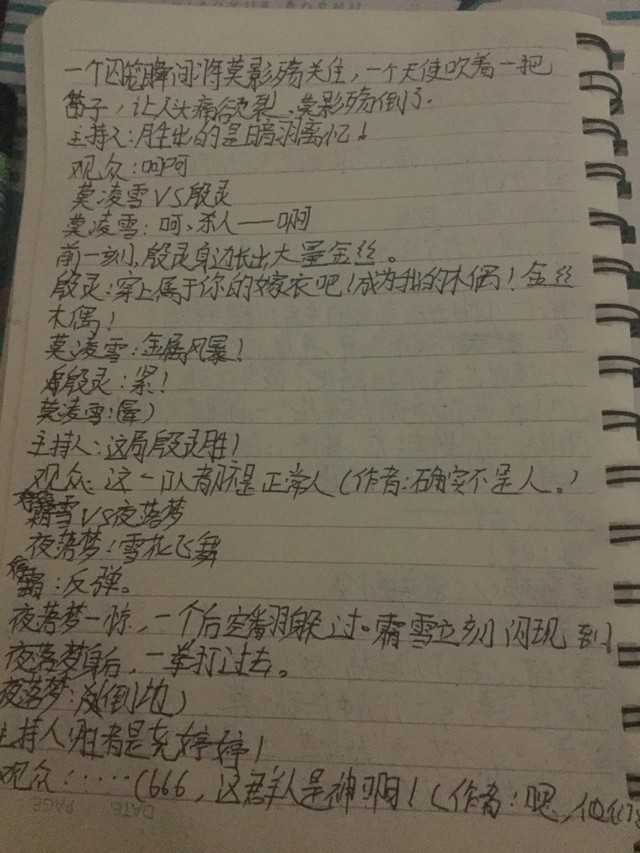 一个囚笼瞬间将莫影殇关住，一个天使吹着一把
笛子，让人头痛欲裂、莫影殇倒了.
主持人:胜出的是暗羽离忆！
观众:呵呵
莫凌雪VS殷灵
莫凌雪：呵、杀人——啊
前一刻，殷灵身边长出大量金丝。
殷灵:穿上属于你的嫁衣吧！成为我的木偶！金丝
木偶！
莫凌雪:金属风暴！
殷灵:紧！
莫凌雪:(晕)
主持人:这局殷灵胜！
观众:这一队都不是正常人(作者:确实不是人。)
霜雪VS夜落梦
夜落梦:雪花飞舞
霜:反弹。
夜落梦一惊，一个后空翻躲过。霜雪立刻闪现到
夜落梦身后，一拳打过去。
夜落梦:(倒地)
主持人:胜者是 婷婷！
观众:……(666，这群人是神啊！(作者:嗯，他们
DATE PAGE